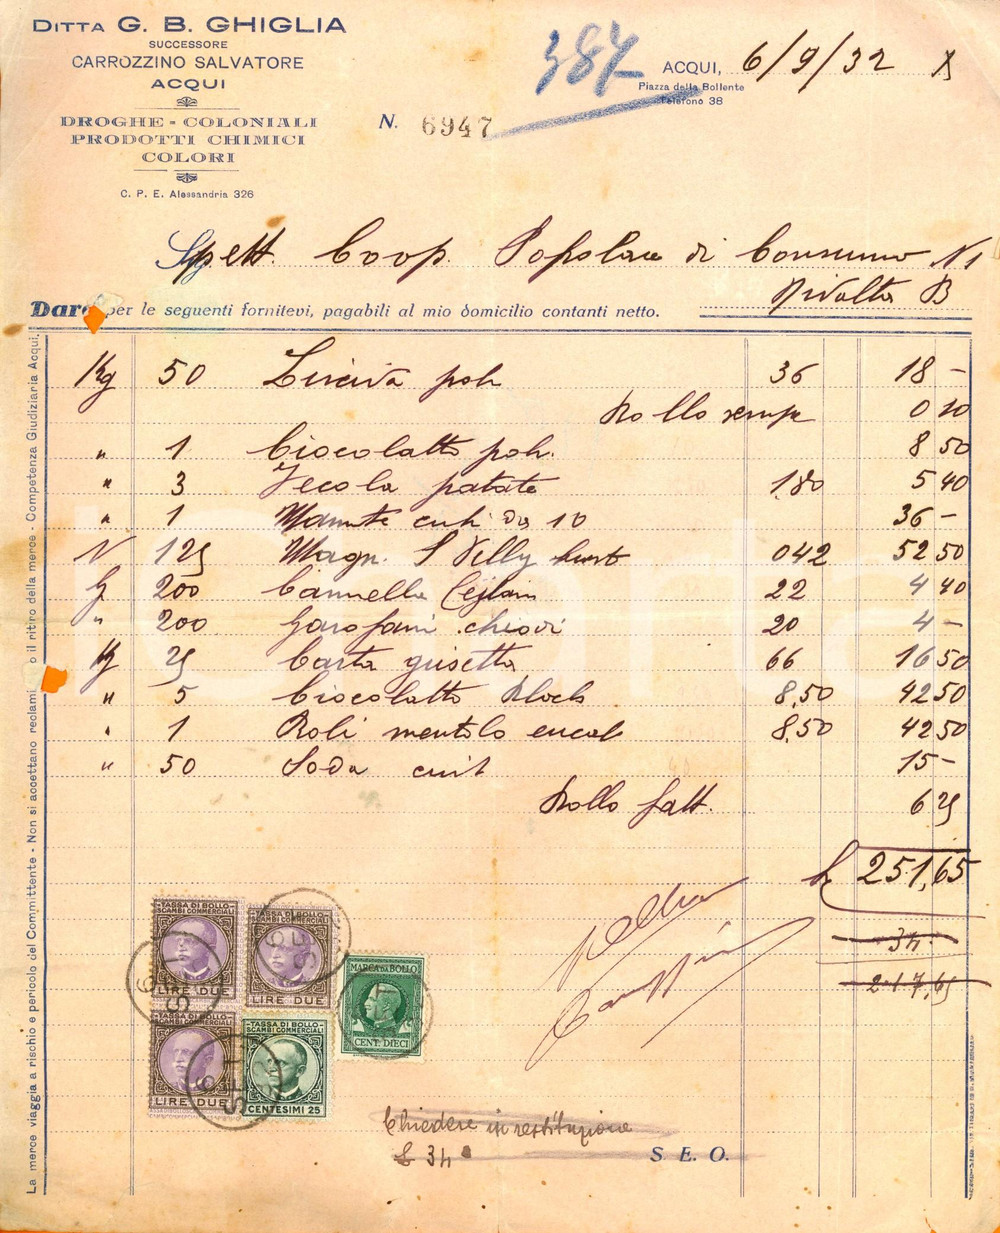 DITTA G. B. GHIGLIA
SUCCESSORE
CARROZZINO SALVATORE
ACQUI
DROGHE - COLONIALI
PRODOTTI CHIMICI
COLORI
C. P. E. Alessandria 326
387
ACQUI, 6/9/32
Piazza della Bollente
Telefono 38
N. 6947
Spett. Coop. Popolare di Consumo N 1
Rivalta B
Dare per le seguenti fornitevi, pagabili al mio domicilio contanti netto.
Kg 50 Liscivia polv 36 18 -
Bollo 0 10
" 1 Cioccolatto polv. 8 50
" 3 Fecola patate 1.80 5 40
" 1 Mamte da 10 36 -
N 125 Magn. S Pelly 042 52 50
G 200 Cannella Ceylan 22 4 40
" 200 Garofani chiodi 20 4 -
Kg 25 Carta grisetta 66 16 50
" 5 Cioccolatto Block 8,50 42 50
" 1 Boli mentolo eucal 8,50 42 50
" 50 Soda crist 15 -
Bollo fatt. 6 25
L 251,65
34.
217,65
TASSA DI BOLLO
SCAMBI COMMERCIALI
LIRE DUE
TASSA DI BOLLO
SCAMBI COMMERCIALI
LIRE DUE
MARCA DA BOLLO
CENT. DIECI
LIRE DUE
TASSA DI BOLLO
SCAMBI COMMERCIALI
CENTESIMI 25
Chiedere in restituzione
£ 34
S. E. O.
La merce viaggia a rischio e pericolo del Committente - Non si accettano reclami o il ritiro della merce - Competenza Giudiziaria Acqui.